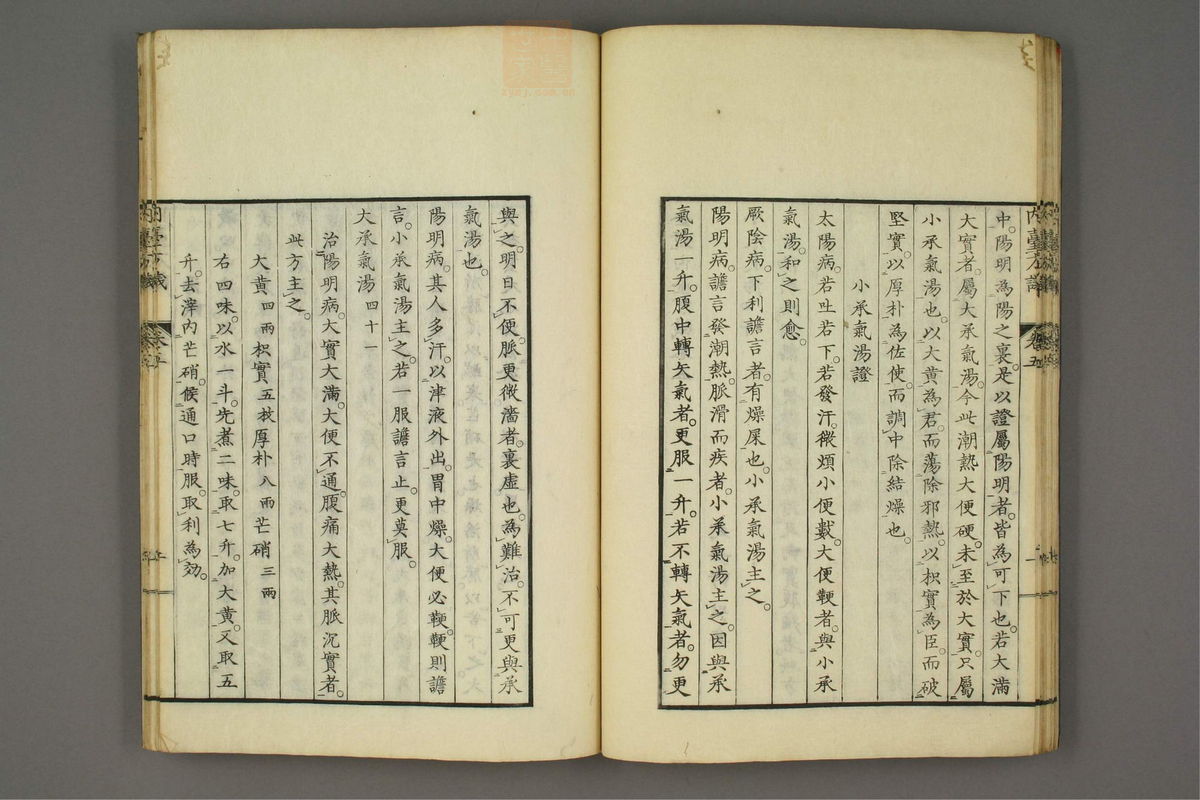 中陽明為陽之裏是以證屬陽明者皆為可下也若大滿
大實者屬大承氣湯今此潮熱大便硬未至於大實只屬
小承氣湯也以大黃為君而蕩除邪熱以枳實為臣而破
堅實以厚朴為佐使而調中除結燥也
小承氣湯證
太陽病若吐若下若發汗微煩小便數大便鞕者與小承
氣湯和之則愈
厥陰病下利譫言者有燥屎也小承氣湯主之
陽明病譫言發潮熱脈滑而疾者小承氣湯主之因與承
氣湯一升腹中轉矢氣者更服一升若不轉矢氣者勿更
與之明日不便脈更微濇者裏虛也為難治不可更與承
氣湯也
陽明病其人多汗以津液外出胃中燥大便必鞕鞕則譫
言小承氣湯主之若一服譫言止更莫服
大承氣湯四十一
治陽明病大實大滿大便不通腹痛大熱其脈沉實者
此方主之
大黃四兩枳實五枚厚朴八兩芒硝三兩
右四味以水一斗先煮二味取七升加大黃又取五
升去滓內芒硝候通口時服取利為効
內臺方議
卷五